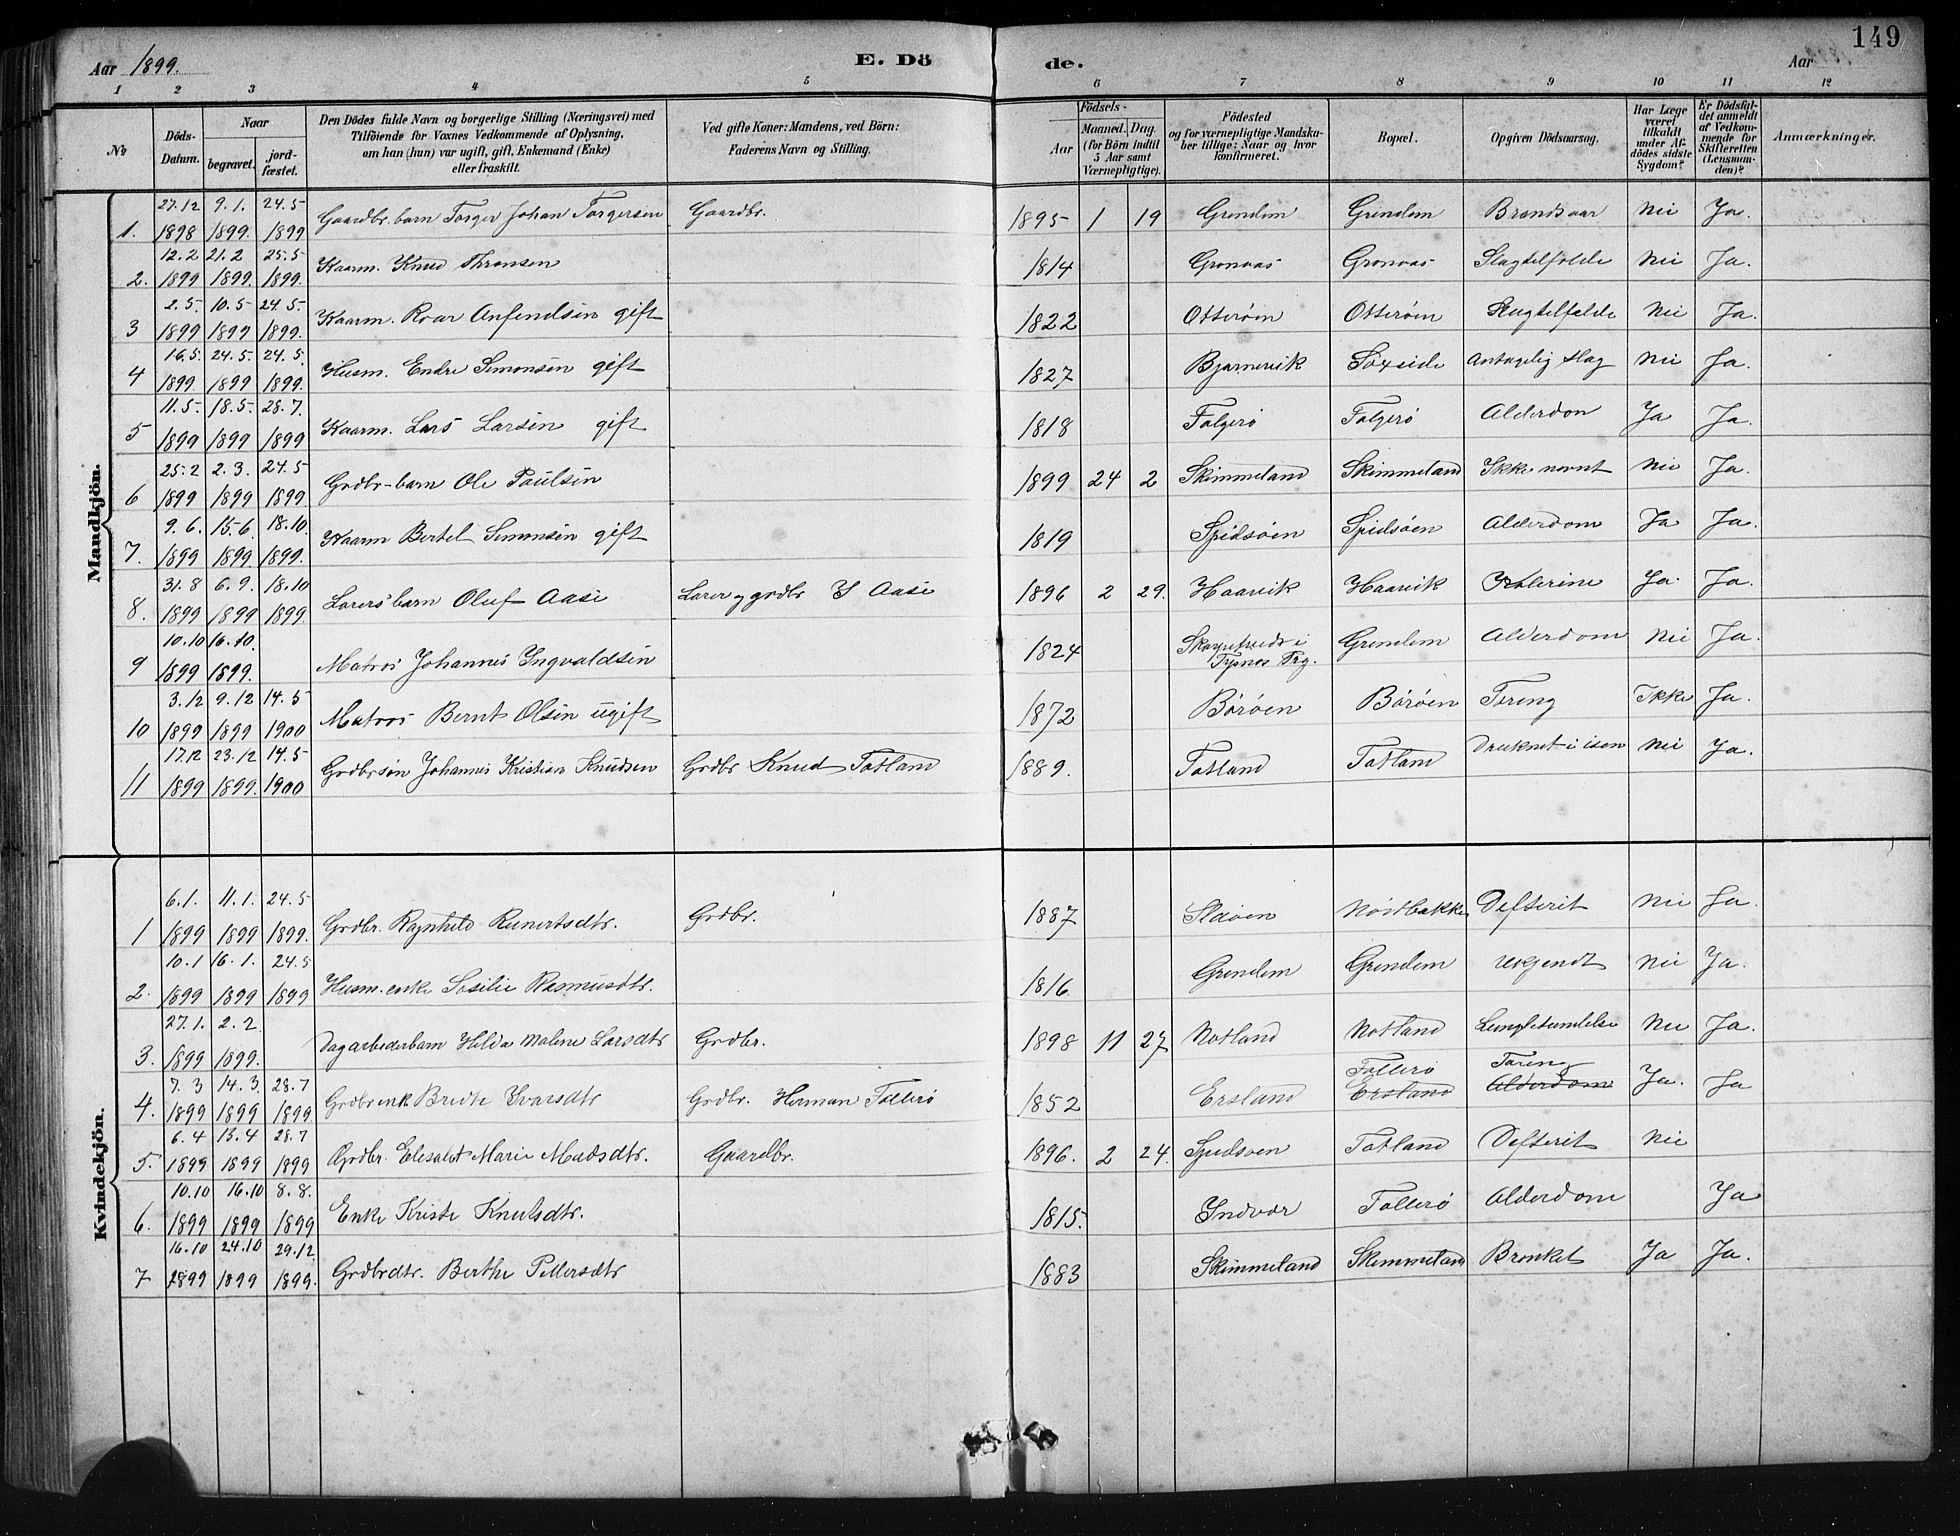 149
Aar 1899.
E. Dö
de.
Aar
1 2 3 4 5 6 7 8 9 10 11 12
No
Döds-Datum.
Naar
begravet.
jord-fæstet.
Den Dödes fulde Navn og borgerlige Stilling (Næringsvei) med
Tilföiende for Voxnes Vedkommende af Oplysning,
om han (hun) var ugift, gift, Enkemand (Enke)
eller fraskilt.
Ved gifte Koner: Mandens, ved Börn:
Faderens Navn og Stilling.
Födsels-
Aar
Maaned. Dag.
(for Börn indtil
5 Aar samt
Værnepligtige).
Födested
og for værnepligtige Mandska-
ber tillige: Naar og hvor
konfirmeret.
Bopæl.
Opgiven Dödsaarsag.
Har Læge
været
tilkaldt
under Af-
dödes sidste
Sygdom?
Er Dödsfal-
det anmeldt
af Vedkom-
mende for
Skifteretten
(Lensman-
den)?
Anmærkninger.
Mandkjön.
27.12 9.1. 24.5
1. 1898 1899. 1899 Gaardbr. barn Torger Johan Torgersen Gaardbr. 1895 1 19 Grindem Grindem Brandsaar Nei Ja.
12.2 21.2 25.5
2. 1899 1899. 1899. Kaarm. Knud Thronsen 1814 Gronvas Gronvas Slagtelfælde Nei Ja.
2.5. 10.5 24.5
3 1899 1899 1899. Kaarm. Roar Anfendsen gift 1822 Otterøen Otterøen Slagtelfælde Nei Ja.
16.5. 24.5. 24.5.
4 1899. 1899 1899. Husm. Endre Simonsen gift 1827 Bjarnevik Søxside Antagelig slag Nei Ja.
11.5. 18.5. 28.7.
5 1899 1899 1899 Kaarm. Lars Larsen gift 1818 Folgerø Folgerø Alderdom Ja Ja.
25.2 2.3. 24.5
6 1899 1899 1899 Grdbr-barn Ole Paulsen 1899 24 2 Skimmeland Skimmeland Ikke nevnt Nei Ja.
9.6. 15.6. 18.10.
7. 1899 1899 1899. Kaarm Bertel Simonsen gift 1819 Spidsøen Spidsøen Alderdom Ja Ja.
31.8 6.9. 18.10
8. 1899 1899 1899. Lærersbarn Oluf Aase Lærer og grdbr I Aase 1896 2 29. Haavik Haavik Ja. Ja.
10.10 16.10.
9 1899 1899. Matros Johannes Ingvaldsen 1824 i Tysnes Prg. Grindem Alderdom Nei Ja.
3.12 9.12 14.5
10 1899 1899 1900 Matros Bernt Olsen ugift 1872 Børøen Børøen Tæring Ikke Ja.
17.12 23.12 14.5
11 1899 1899. 1900 Grdbrsøn Johannes Kristian Knudsen Grdbr Knud Totland 1889. Totland Totland Druknet i isen Nei Ja.
Kvindekjön.
6.1. 11.1. 24.5
1 1899 1899 1899. Grdbr. Ragnhild Runertsdtr. Grdbr. 1887 Sldøen Nordbakke Defterit Nei Ja.
10.1 16.1. 24.5
2. 1899 1899 1899 Husm. enke Sosilie Rasmusdtr. 1816 Grindem Grindem ukjendt Nei Ja.
27.1. 2.2.
3. 1899 1899. Dagarbederbarn Hilda Malene Larsdtr Grdbr. 1898 11 27 Notland Notland Lungbetændelse Nei Ja.
7.3 14.3 28.7
4. 1899 1899 1899. Grdbrenk Brede Ivarsdtr Grdbr. Herman Tollerø 1852 Ersland Tollerø Ersland Tæring Alderdom Ja. Ja
6.4 13.4 28.7
5. 1899 1899 1899 Grdbr. Elesabet Marie Madsdtr. Gaardbr. 1896. 2 24. Spidsøen Totland Defterit Nei
10.10 16.10 8.8.
6. 1899 1899 1899 Enke Kriste Knudsdtr. 1815. Indvær Tollerø Alderdom Ja
16.10 24.10 29.12
7 1899 1899 1899. Grdbrdtr. Berthe Pettersdtr 1883 Skimmeland Skimmeland Bronket Ja Ja.